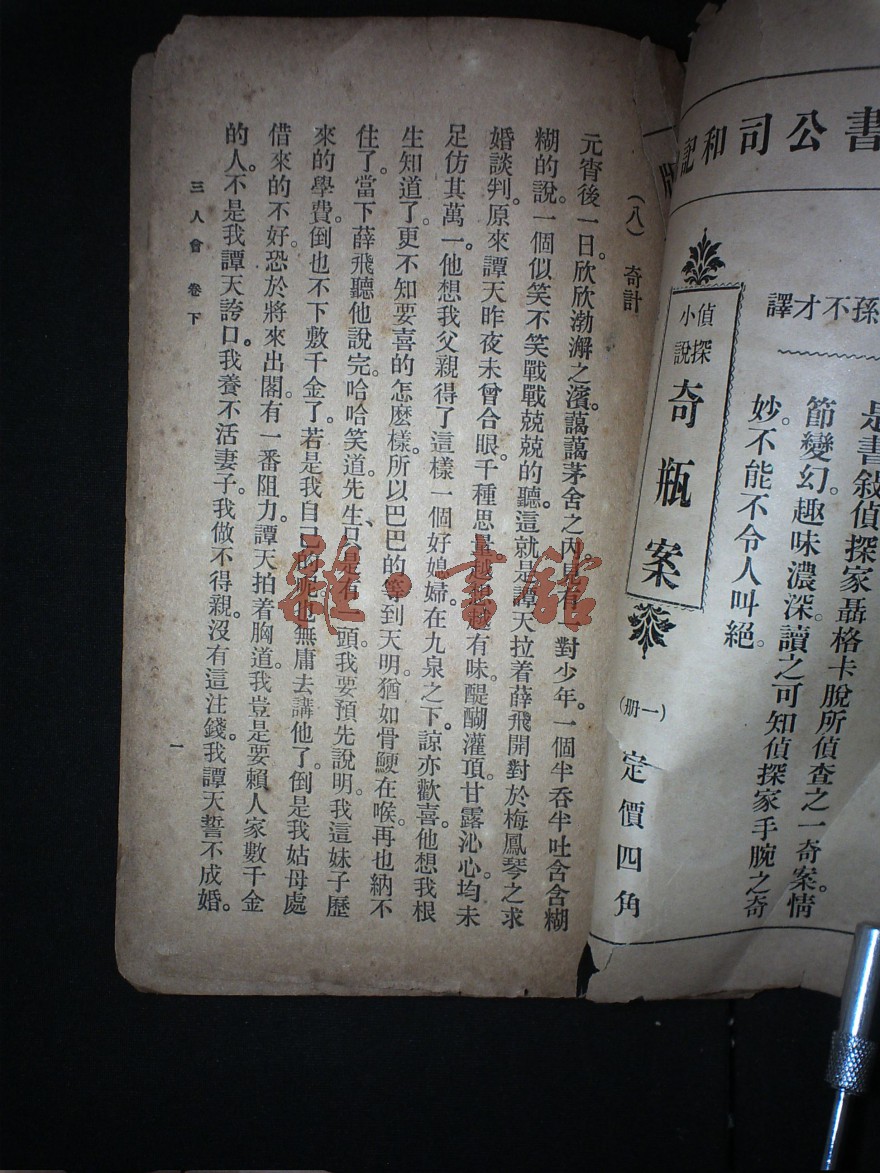 書公司和記
孫不才譯
是書叙偵探家聶格卡脫所偵查之一奇案。情
節變幻。趣味濃深。讀之可知偵探家手腕之奇
妙。不能不令人叫絕。
偵探
小說
奇瓶案
(一册)
定價四角
(八) 奇計
元宵後一日。欣欣渤澥之濱。藹藹茅舍之內。見有一對少年。一個半吞半吐含含糊
糊的說。一個似笑不笑戰戰兢兢的聽。這就是譚天拉着薛飛開對於梅鳳琴之求
婚談判。原來譚天昨夜未曾合眼。千種思量越想越有味。醍醐灌頂。甘露沁心。均未
足仿其萬一。他想我父親得了這樣一個好媳婦。在九泉之下。諒亦歡喜。他想我根
生知道了。更不知要喜的怎麽樣。所以巴巴的等到天明。猶如骨鯁在喉。再也納不
住了。當下薛飛聽他說完。哈哈笑道。先生、只是有一頭。我要預先說明。我這妹子歷
來的學費。倒也不下數千金了。若是我自己的呢。也無庸去講他了。倒是我姑母處
借來的不好。恐於將來出閣。有一番阻力。譚天拍着胸道。我豈是要賴人家數千金
的人。不是我譚天誇口。我養不活妻子。我做不得親。沒有這注錢。我譚天誓不成婚。
三人會 卷下
一
雜·書館